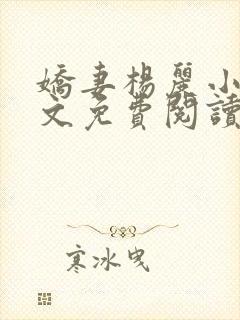 嬌妻楊麗小
文免費閱讀
寒冰曳